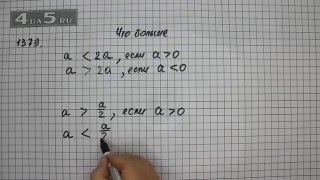 4da5.ru
Что больше
1379.
a < 2a, если a > 0
a > 2a, если a < 0
a > a/2, если a > 0
a < a/2